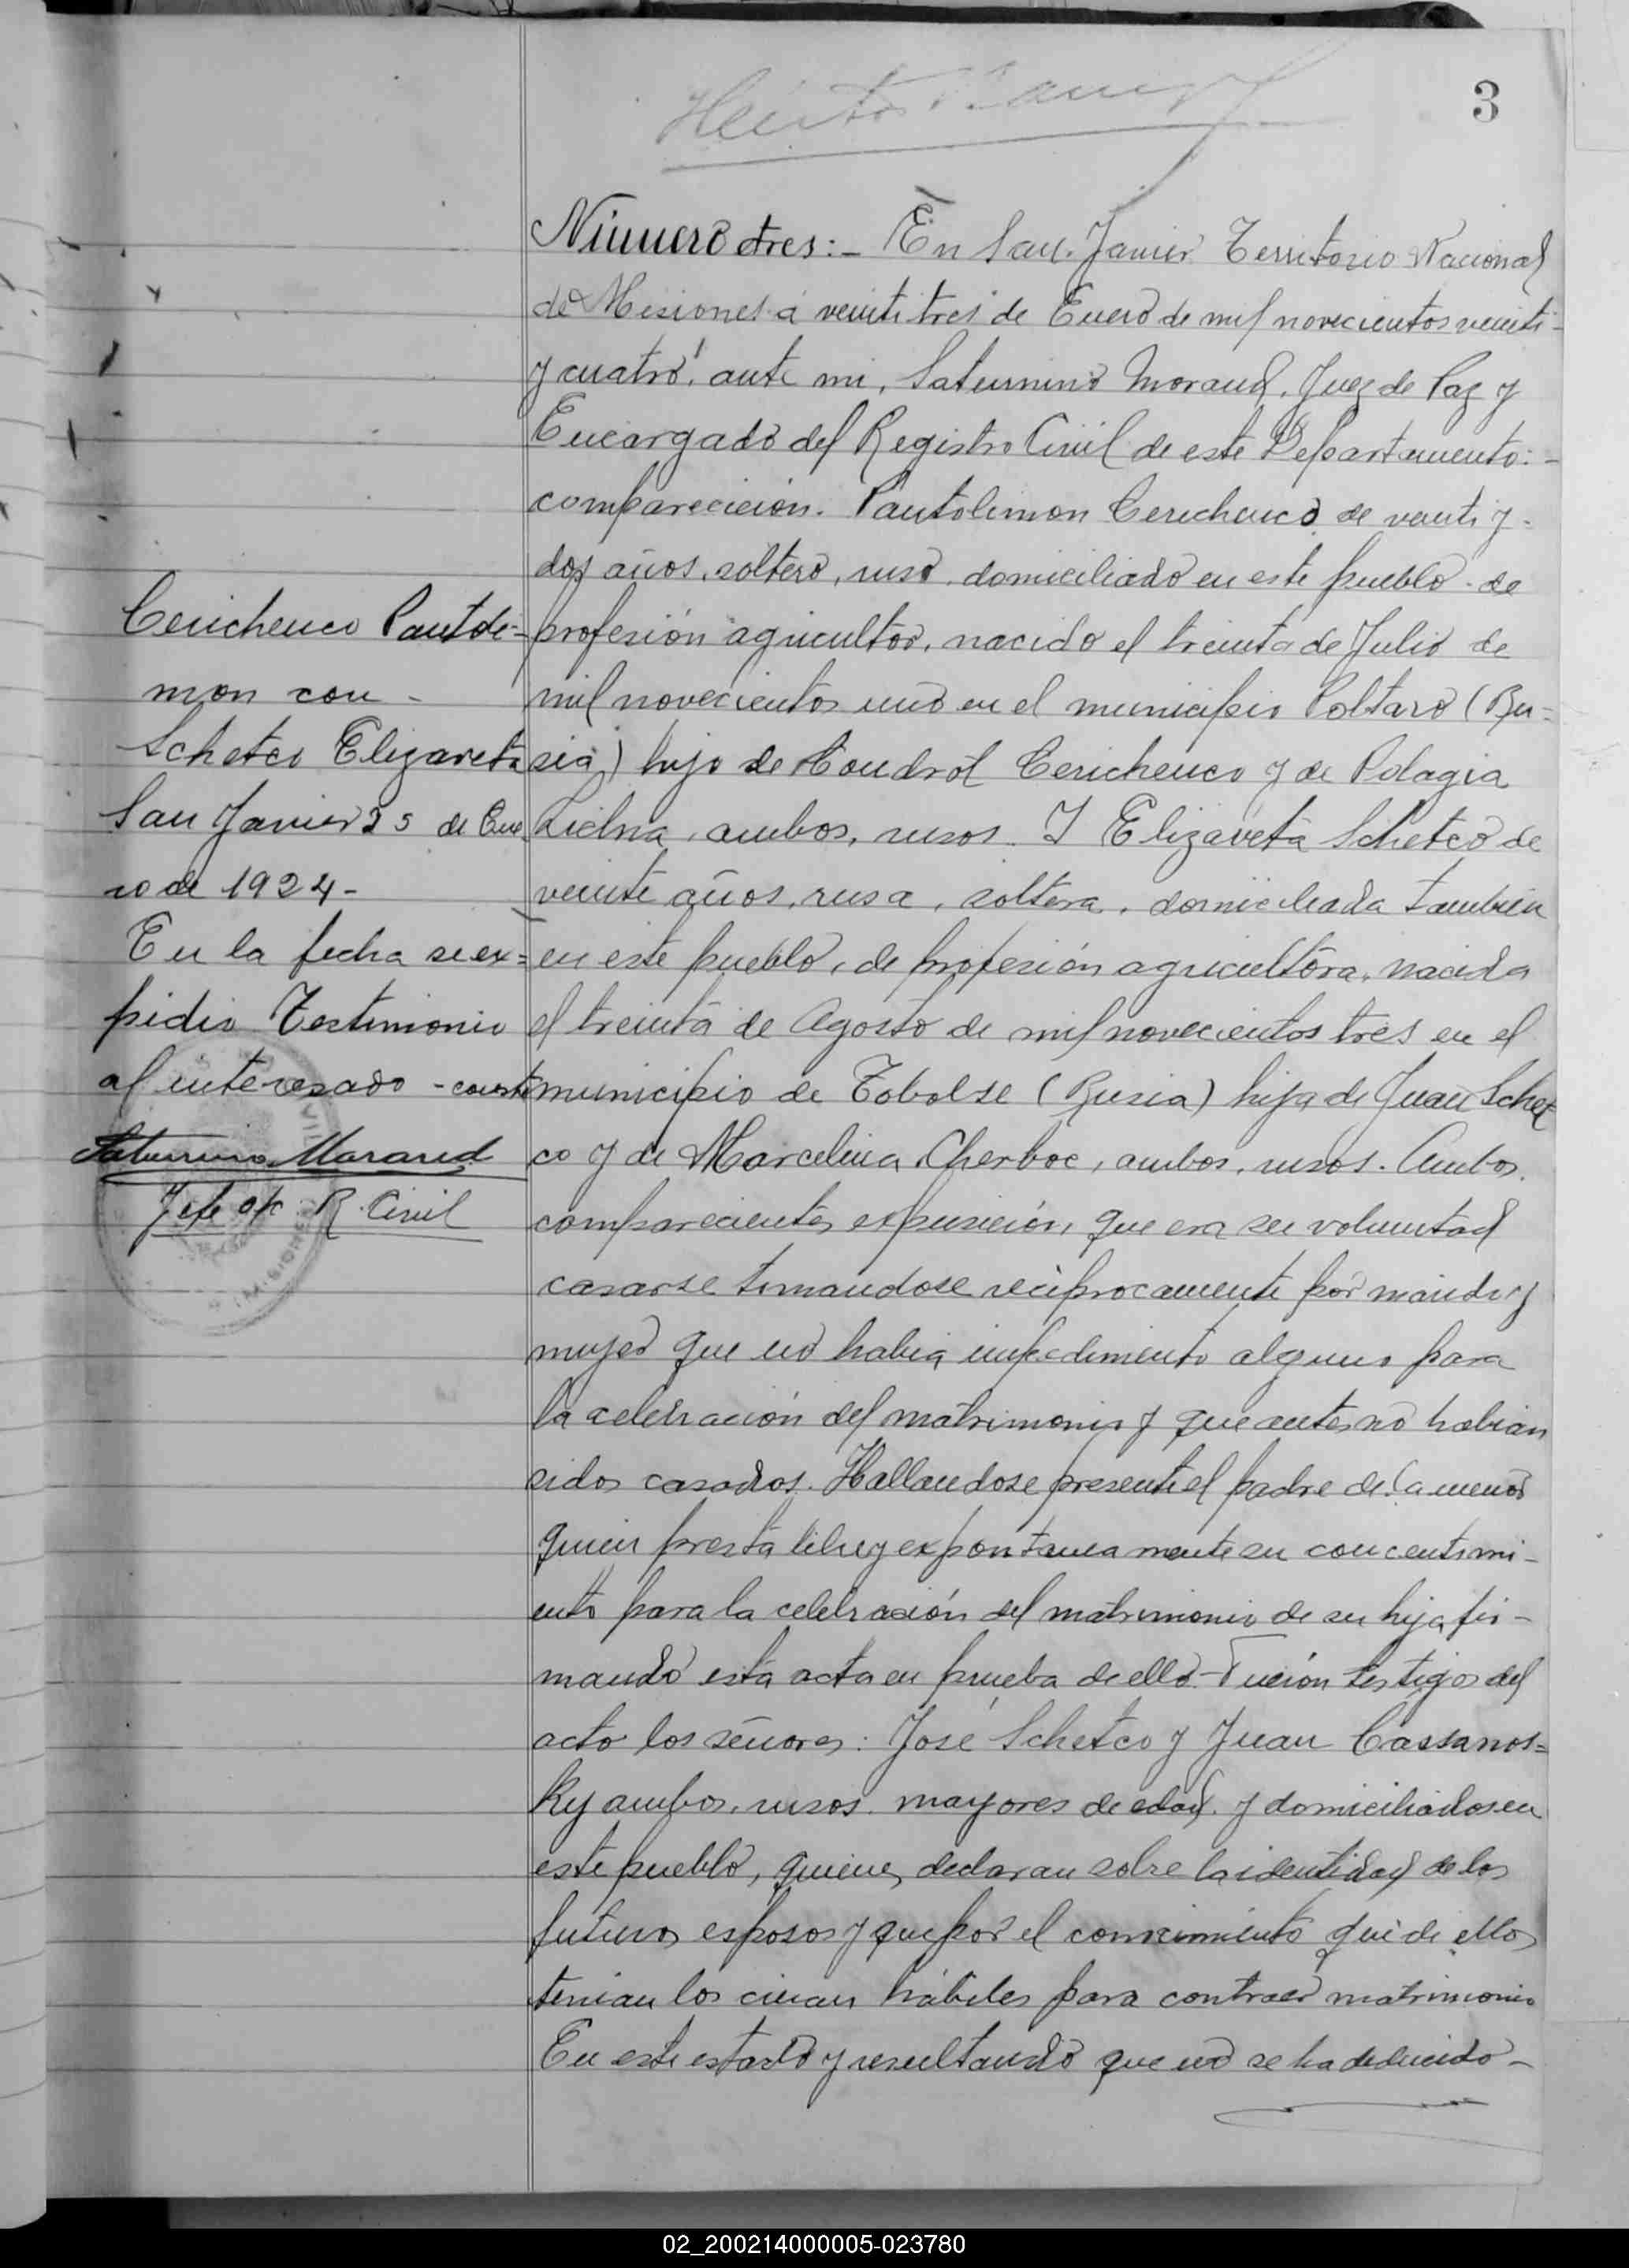 3
Número tres:- En San Javier Territorio Nacional
de Misiones á veinti tres de Enero de mil novecientos veinti-
y cuatro, ante mi, Saturnino Morand, Juez de Paz y
Encargado del Registro Civil de este Departamento:-
comparecieron. Pantolimon Cerichenco de veinti y-
dos años, soltero, ruso, domiciliado en este pueblo de
profesión agricultor, nacido el treinta de Julio de
mil novecientos uno en el municipio Poltaro (Ru=
sia) hijo de Condrot Cerichenco y de Polagia
ambos, rusos. Y Elizaveta Schetco de
veinte años, rusa, soltera, domiciliada tambien
en este pueblo, de profesión agricultora, nacida
el treinta de Agosto de mil novecientos tres en el
municipio de Tobolse (Rusia) hija de Juan Schet
co y de Marcelina Cherboc, ambos, rusos. Ambos
comparecientes expusieron, que era su voluntad
casarse tomandose reciprocamente por marido y
mujer que no habia impedimento alguno para
la celebración del matrimonio y que antes no habian
sidos casados. Hallandose presente el padre de la menor
quien presta libre y expontaneamente su concentimi-
ento para la celebración del matrimonio de su hija fir-
mando esta acta en prueba de ello- Fueron testigos del
acto los señores: José Schetco y Juan Cassanos=
ky ambos, rusos. mayores de edad. y domiciliados en
este pueblo, quienes declaran sobre la identidad de los
futuros esposos y que por el conocimiento que de ellos
tenian los creian hábiles para contraer matrimonio
En este estado y resultando que no se ha deducido-
Cerichenco Pantoli=
mon con -
Schetco Elizaveta
San Javier 25 de Ene
ro de 1924-
En la fecha se ex=
pidio Testimonio
al interesado - conste
Saturnino Morand
Jefe of. R. Civil
02_200214000005-023780